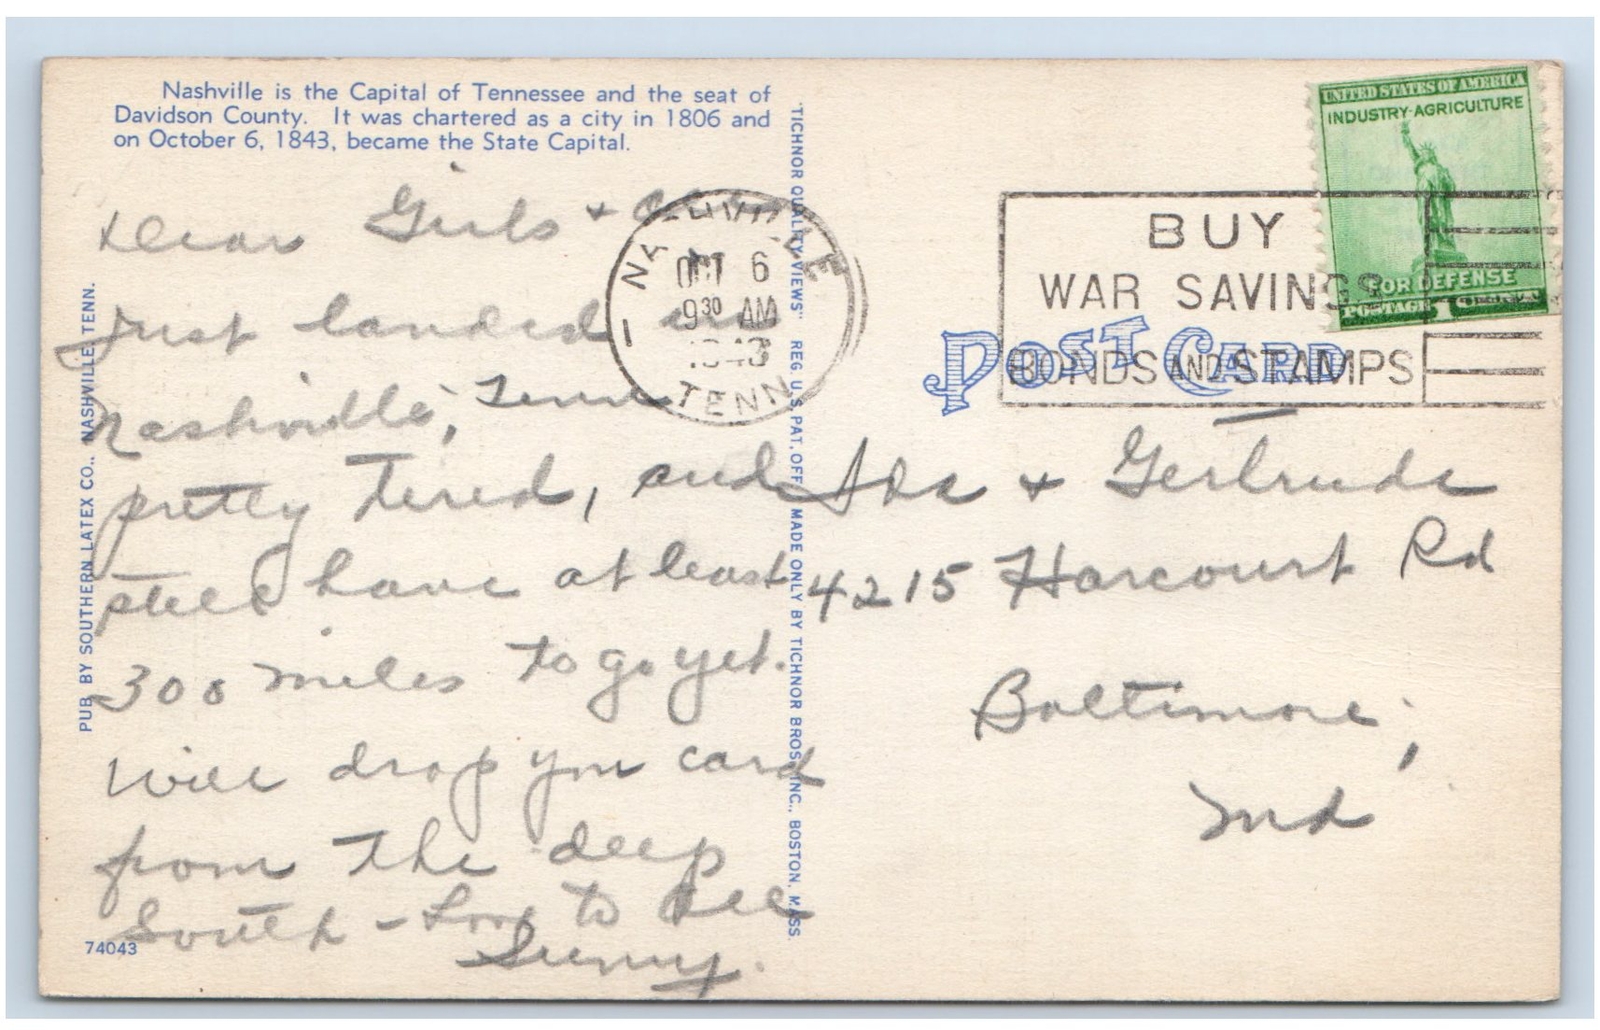 Nashville is the Capital of Tennessee and the seat of
Davidson County. It was chartered as a city in 1806 and
on October 6, 1843, became the State Capital.
Dear Girls +
Just landed in
Nashville, Tenn
pretty tired, and
still have at least
300 miles to go yet.
Will drop you card
from the deep
South - Love to all
Sunny.
PUB. BY SOUTHERN LATEX CO., NASHVILLE, TENN.
74043
"TICHNOR QUALITY VIEWS" REG. U.S. PAT. OFF. MADE ONLY BY TICHNOR BROS., INC., BOSTON, MASS.
NASHVILLE
OCT 6
9 30 AM
1943
TENN
1
BUY
WAR SAVINGS
BONDS AND STAMPS
UNITED STATES OF AMERICA
INDUSTRY-AGRICULTURE
FOR DEFENSE
POSTAGE 1
POST CARD
Ida + Gertrude
4215 Harcourt Rd
Baltimore,
Md